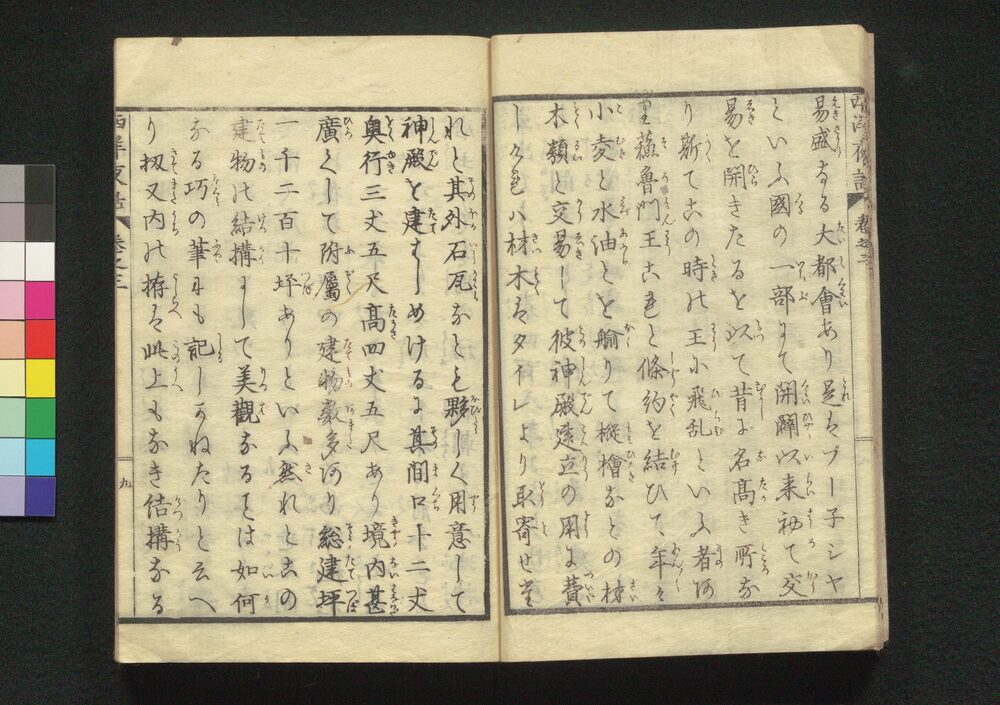 易盛なる大都會あり是はプー子シヤ
といふ國の一部にて開闢以来初て交
易を開きたるを以て昔よ名高き所な
り斯てこの時の王小飛乱といふ者あ
里蘓魯門王これと條約を結ひて年々
小麦と水油とを輸りて樅檜などの材
木類と交易して彼神殿建立の用に費
しけれハ材木はタイレより取寄せ堂
れと其外石瓦なとも夥しく用意して
神殿を建はしめけるに其間口十二丈
奥行三丈五尺髙四丈五尺あり境内甚
廣くして附属の建物数多あり総建坪
一千二百十坪ありといふ然れとこの
建物の結構にして美觀なることは如何
なる巧の筆にも記しかねたりと云へ
り扨又内の拵は此上もなき結構なる
西洋夜話 巻之三
九